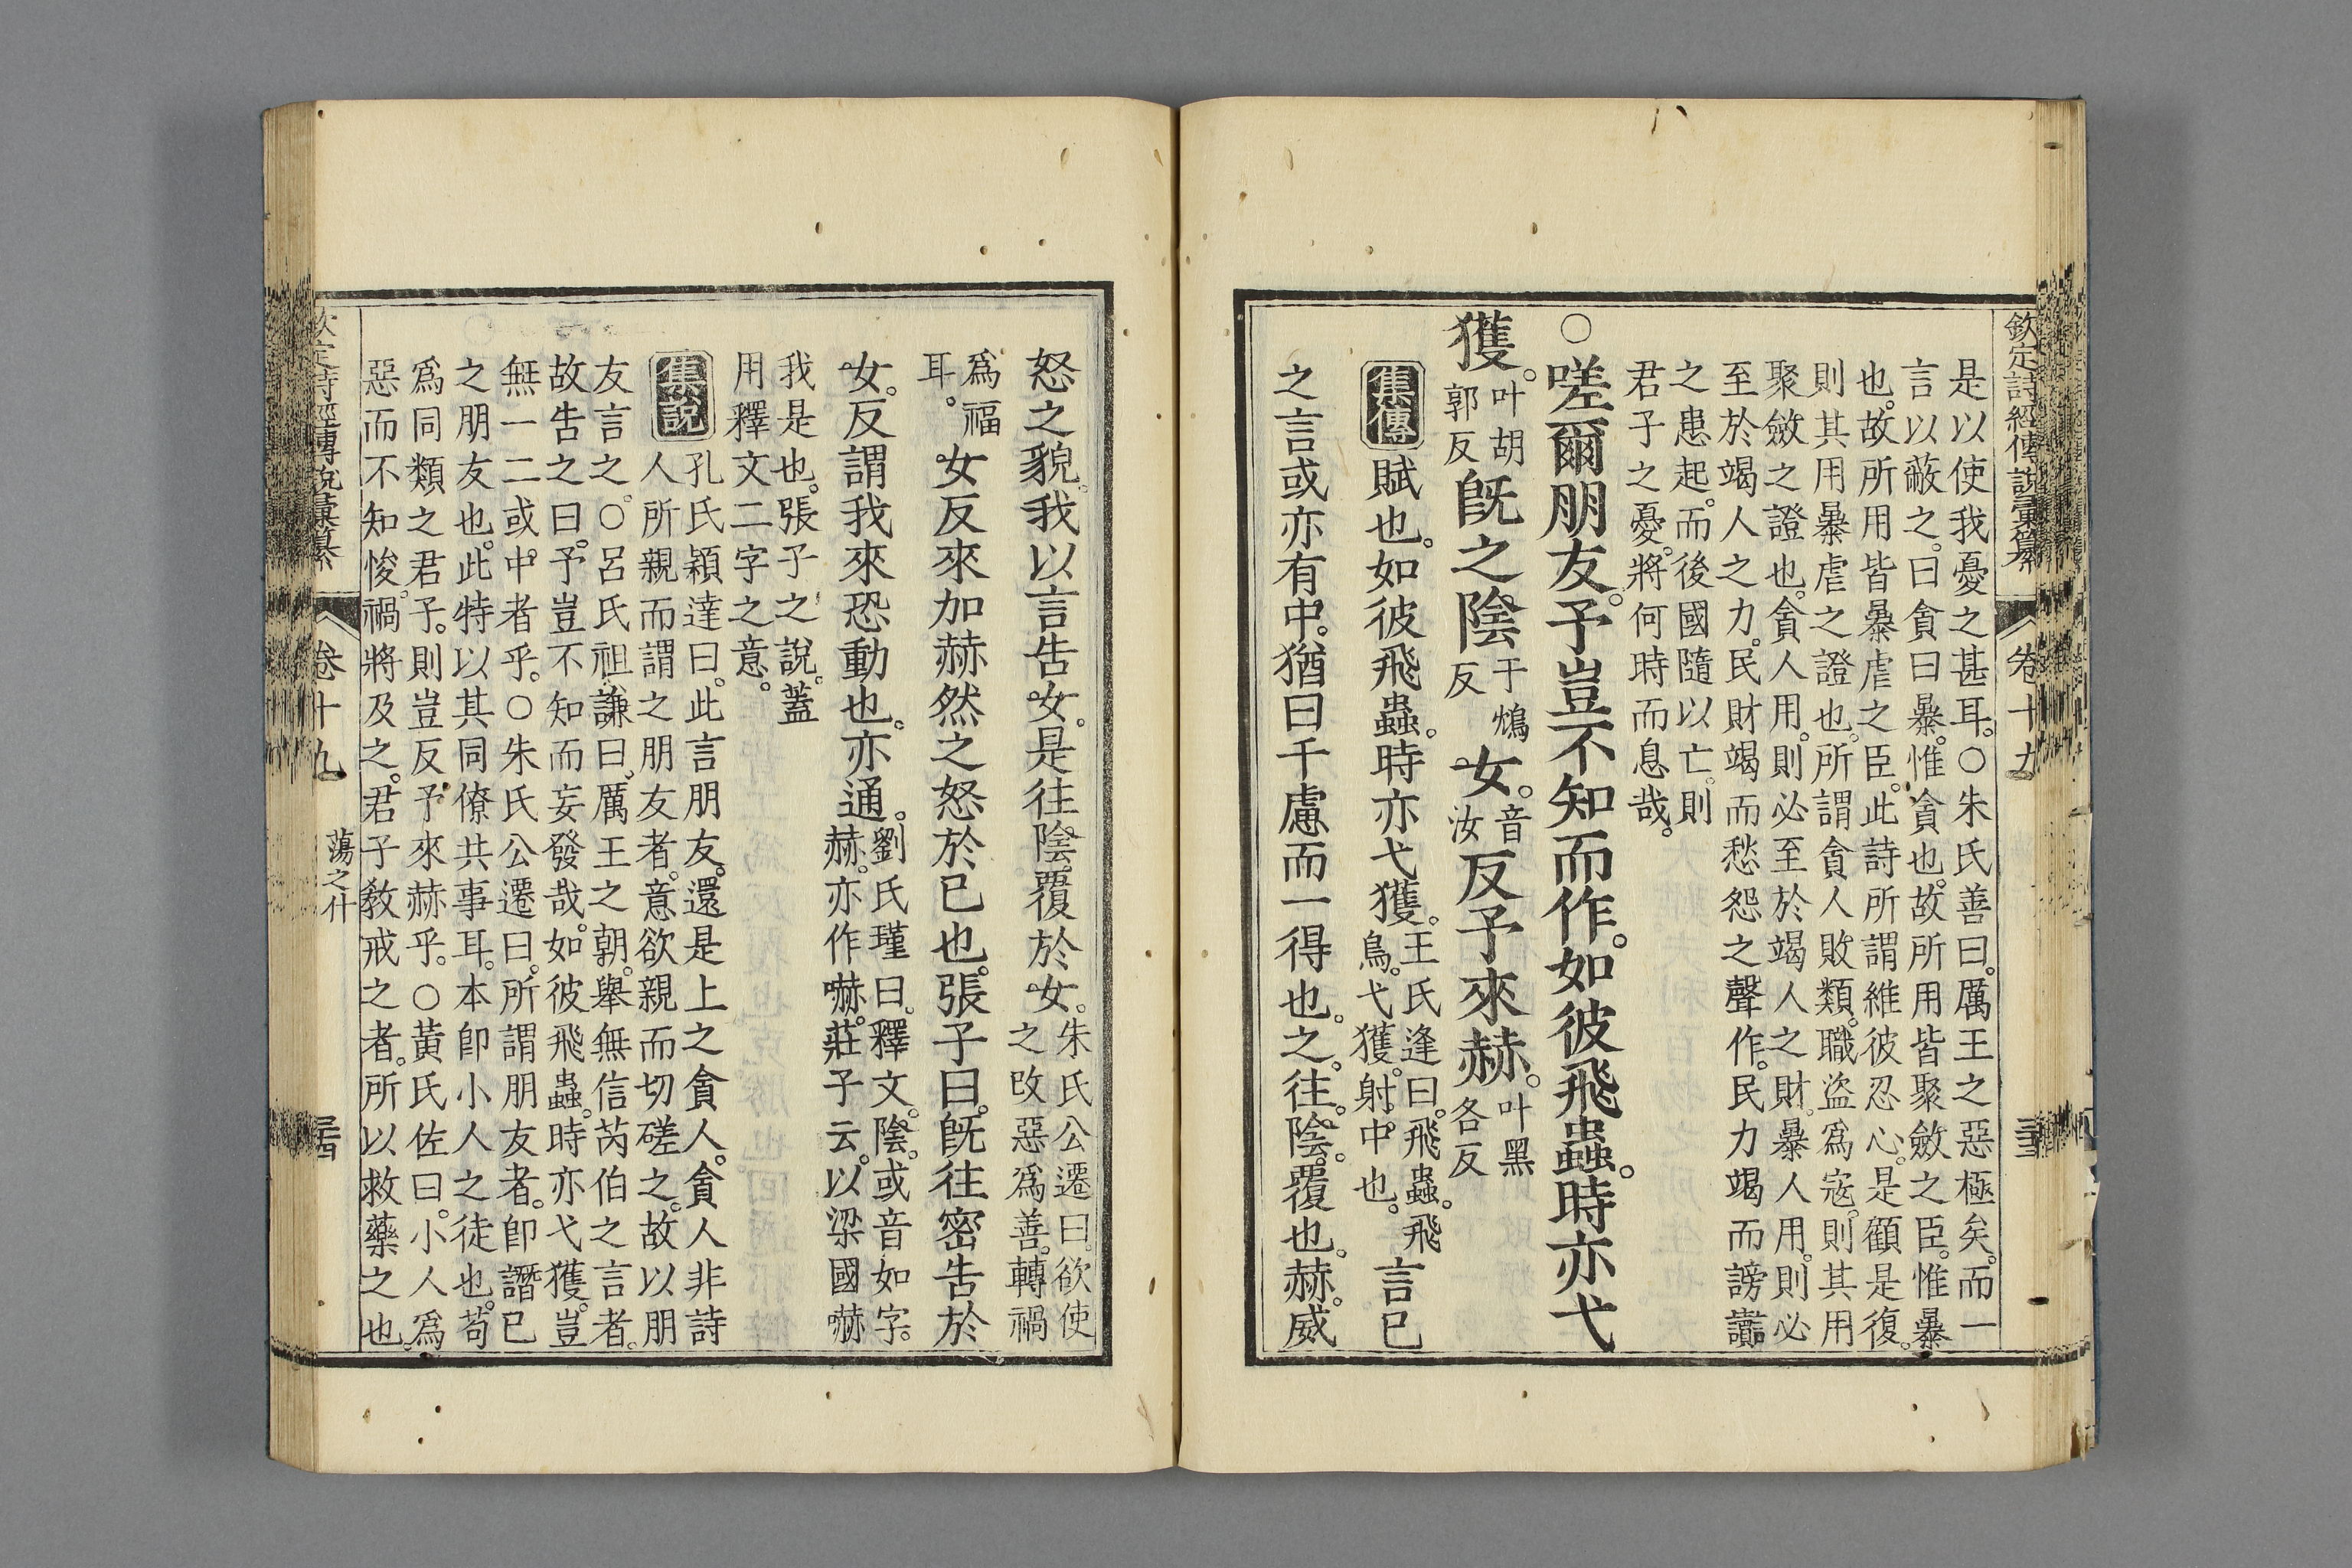 欽定詩經傳說彙纂 卷十九
是以使我憂之甚耳○朱氏善曰厲王之惡極矣而一
言以蔽之曰貪曰暴惟貪也故所用皆聚斂之臣惟暴
也故所用皆暴虐之臣此詩所謂維彼忍心是顧是復
則其用暴虐之證也所謂貪人敗類職盜爲寇則其用
聚斂之證也貪人用則必至於竭人之財暴人用則必
至於竭人之力民財竭而愁怨之聲作民力竭而謗讟
之患起而後國隨以亡則
君子之憂將何時而息哉
○嗟爾朋友予豈不知而作如彼飛蟲時亦弋
獲叶胡
郭反旣之陰于鴆
反女音
汝反予來赫叶黑
各反
集傳 賦也如彼飛蟲時亦弋獲王氏逢曰飛蟲飛
鳥弋獲射中也言已
之言或亦有中猶曰千慮而一得也之往陰覆也赫威
怒之貌我以言告女是往陰覆於女朱氏公遷曰欲使
之改惡爲善轉禍
爲福
耳女反來加赫然之怒於已也張子曰旣往密告於
女反謂我來恐動也亦通劉氏瑾曰釋文陰或音如字
赫亦作嚇莊子云以梁國嚇
我是也張子之說蓋
用釋文二字之意
集說 孔氏穎達曰此言朋友還是上之貪人貪人非詩
人所親而謂之朋友者意欲親而切磋之故以朋
友言之○呂氏祖謙曰厲王之朝舉無信芮伯之言者
故告之曰予豈不知而妄發哉如彼飛蟲時亦弋獲豈
無一二或中者乎○朱氏公遷曰所謂朋友者卽譖已
之朋友也此特以其同僚共事耳本卽小人之徒也苟
爲同類之君子則豈反予來赫乎○黃氏佐曰小人爲
惡而不知悛禍將及之君子敎戒之者所以救藥之也
欽定詩經傳說彙纂 卷十九 蕩之什